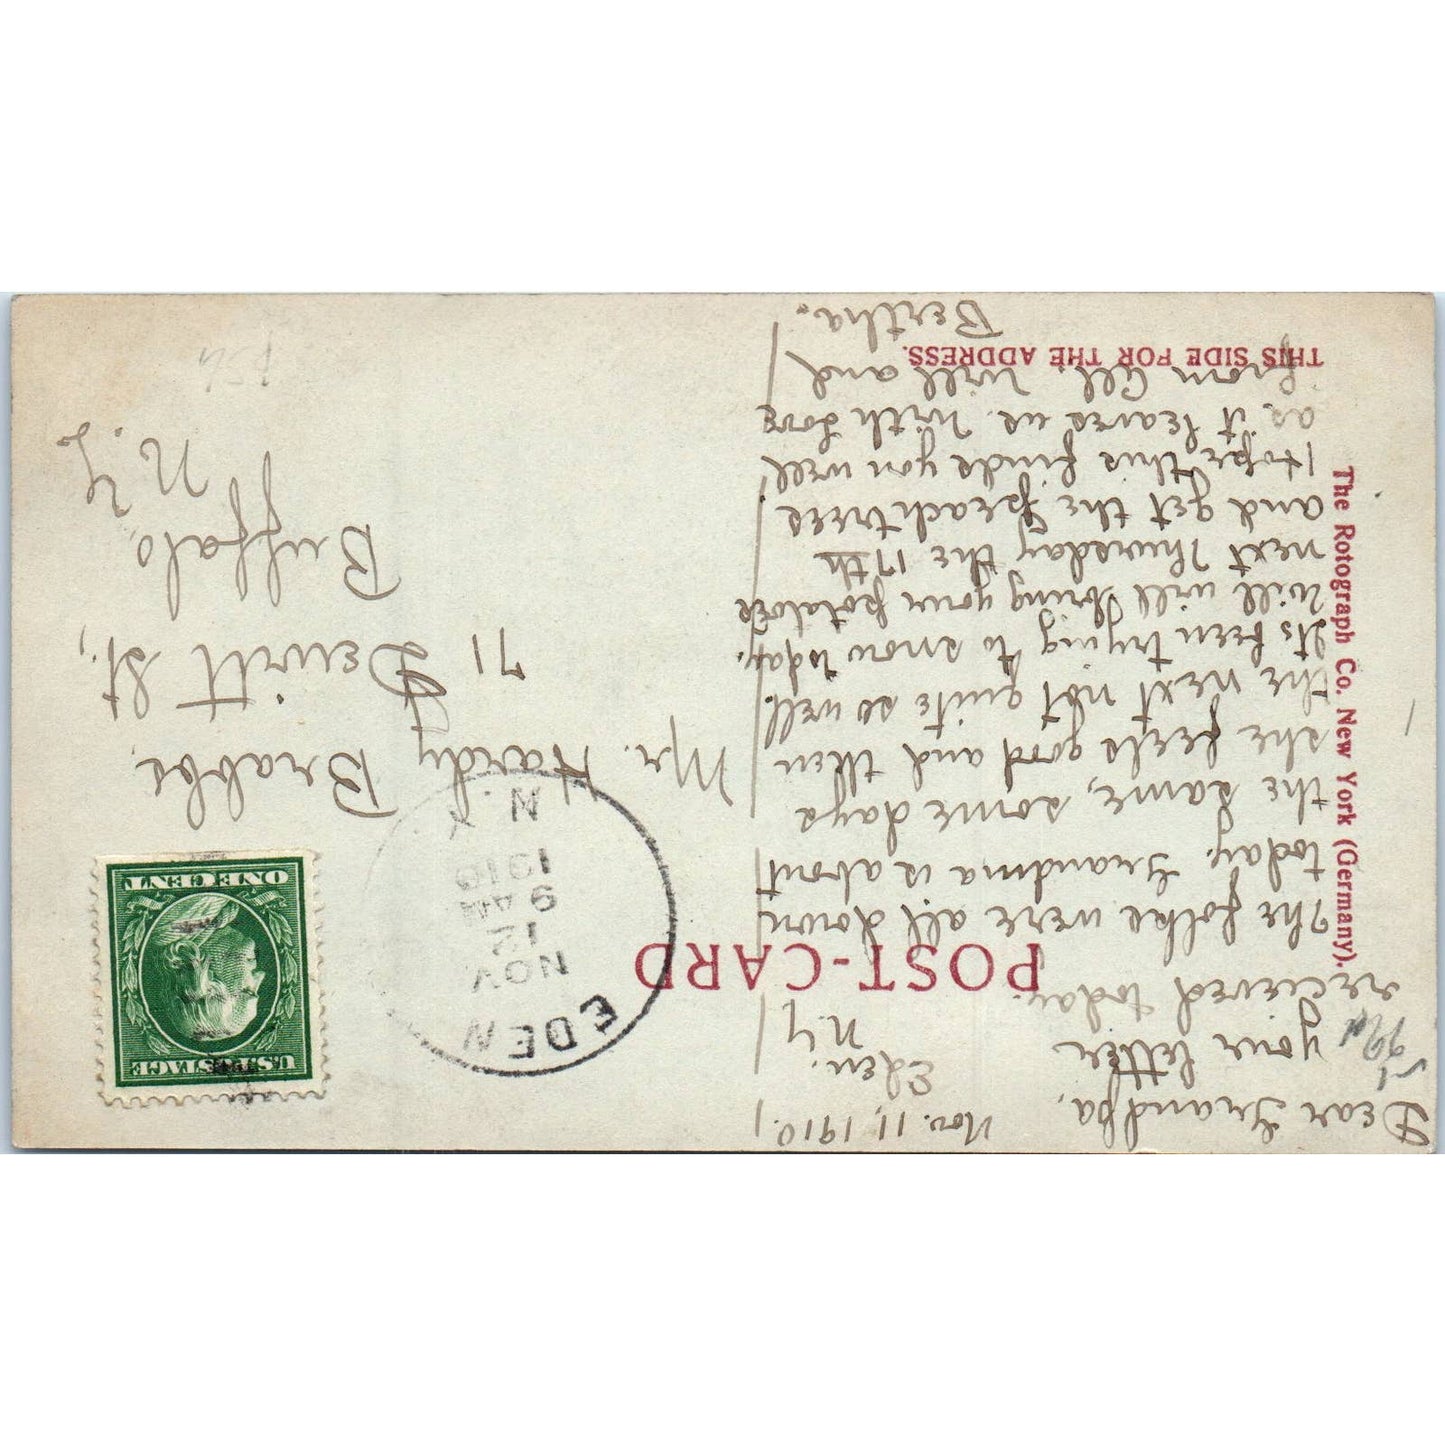 Nov. 11, 1910.
Eden.
N.Y
Dear Grandpa,
your letter
recieved today.
The folks were all down
today. Grandma is about
the same, some days
she feels good and then
the next not quite so well.
Its been trying to snow today.
Will will bring your potatoes
next Thursday the 17th
and get the peach trees
Hope this finds you well
as it leaves us. With Love
from All. Will and
Bertha.
POST-CARD
THIS SIDE FOR THE ADDRESS.
The Rotograph Co. New York (Germany).
EDEN
NOV
12
9 AM
1910
N.Y.
U.S. POSTAGE
ONE CENT
Mr. Hardy Brabbe,
71 Dewitt St.,
Buffalo,
N.Y.